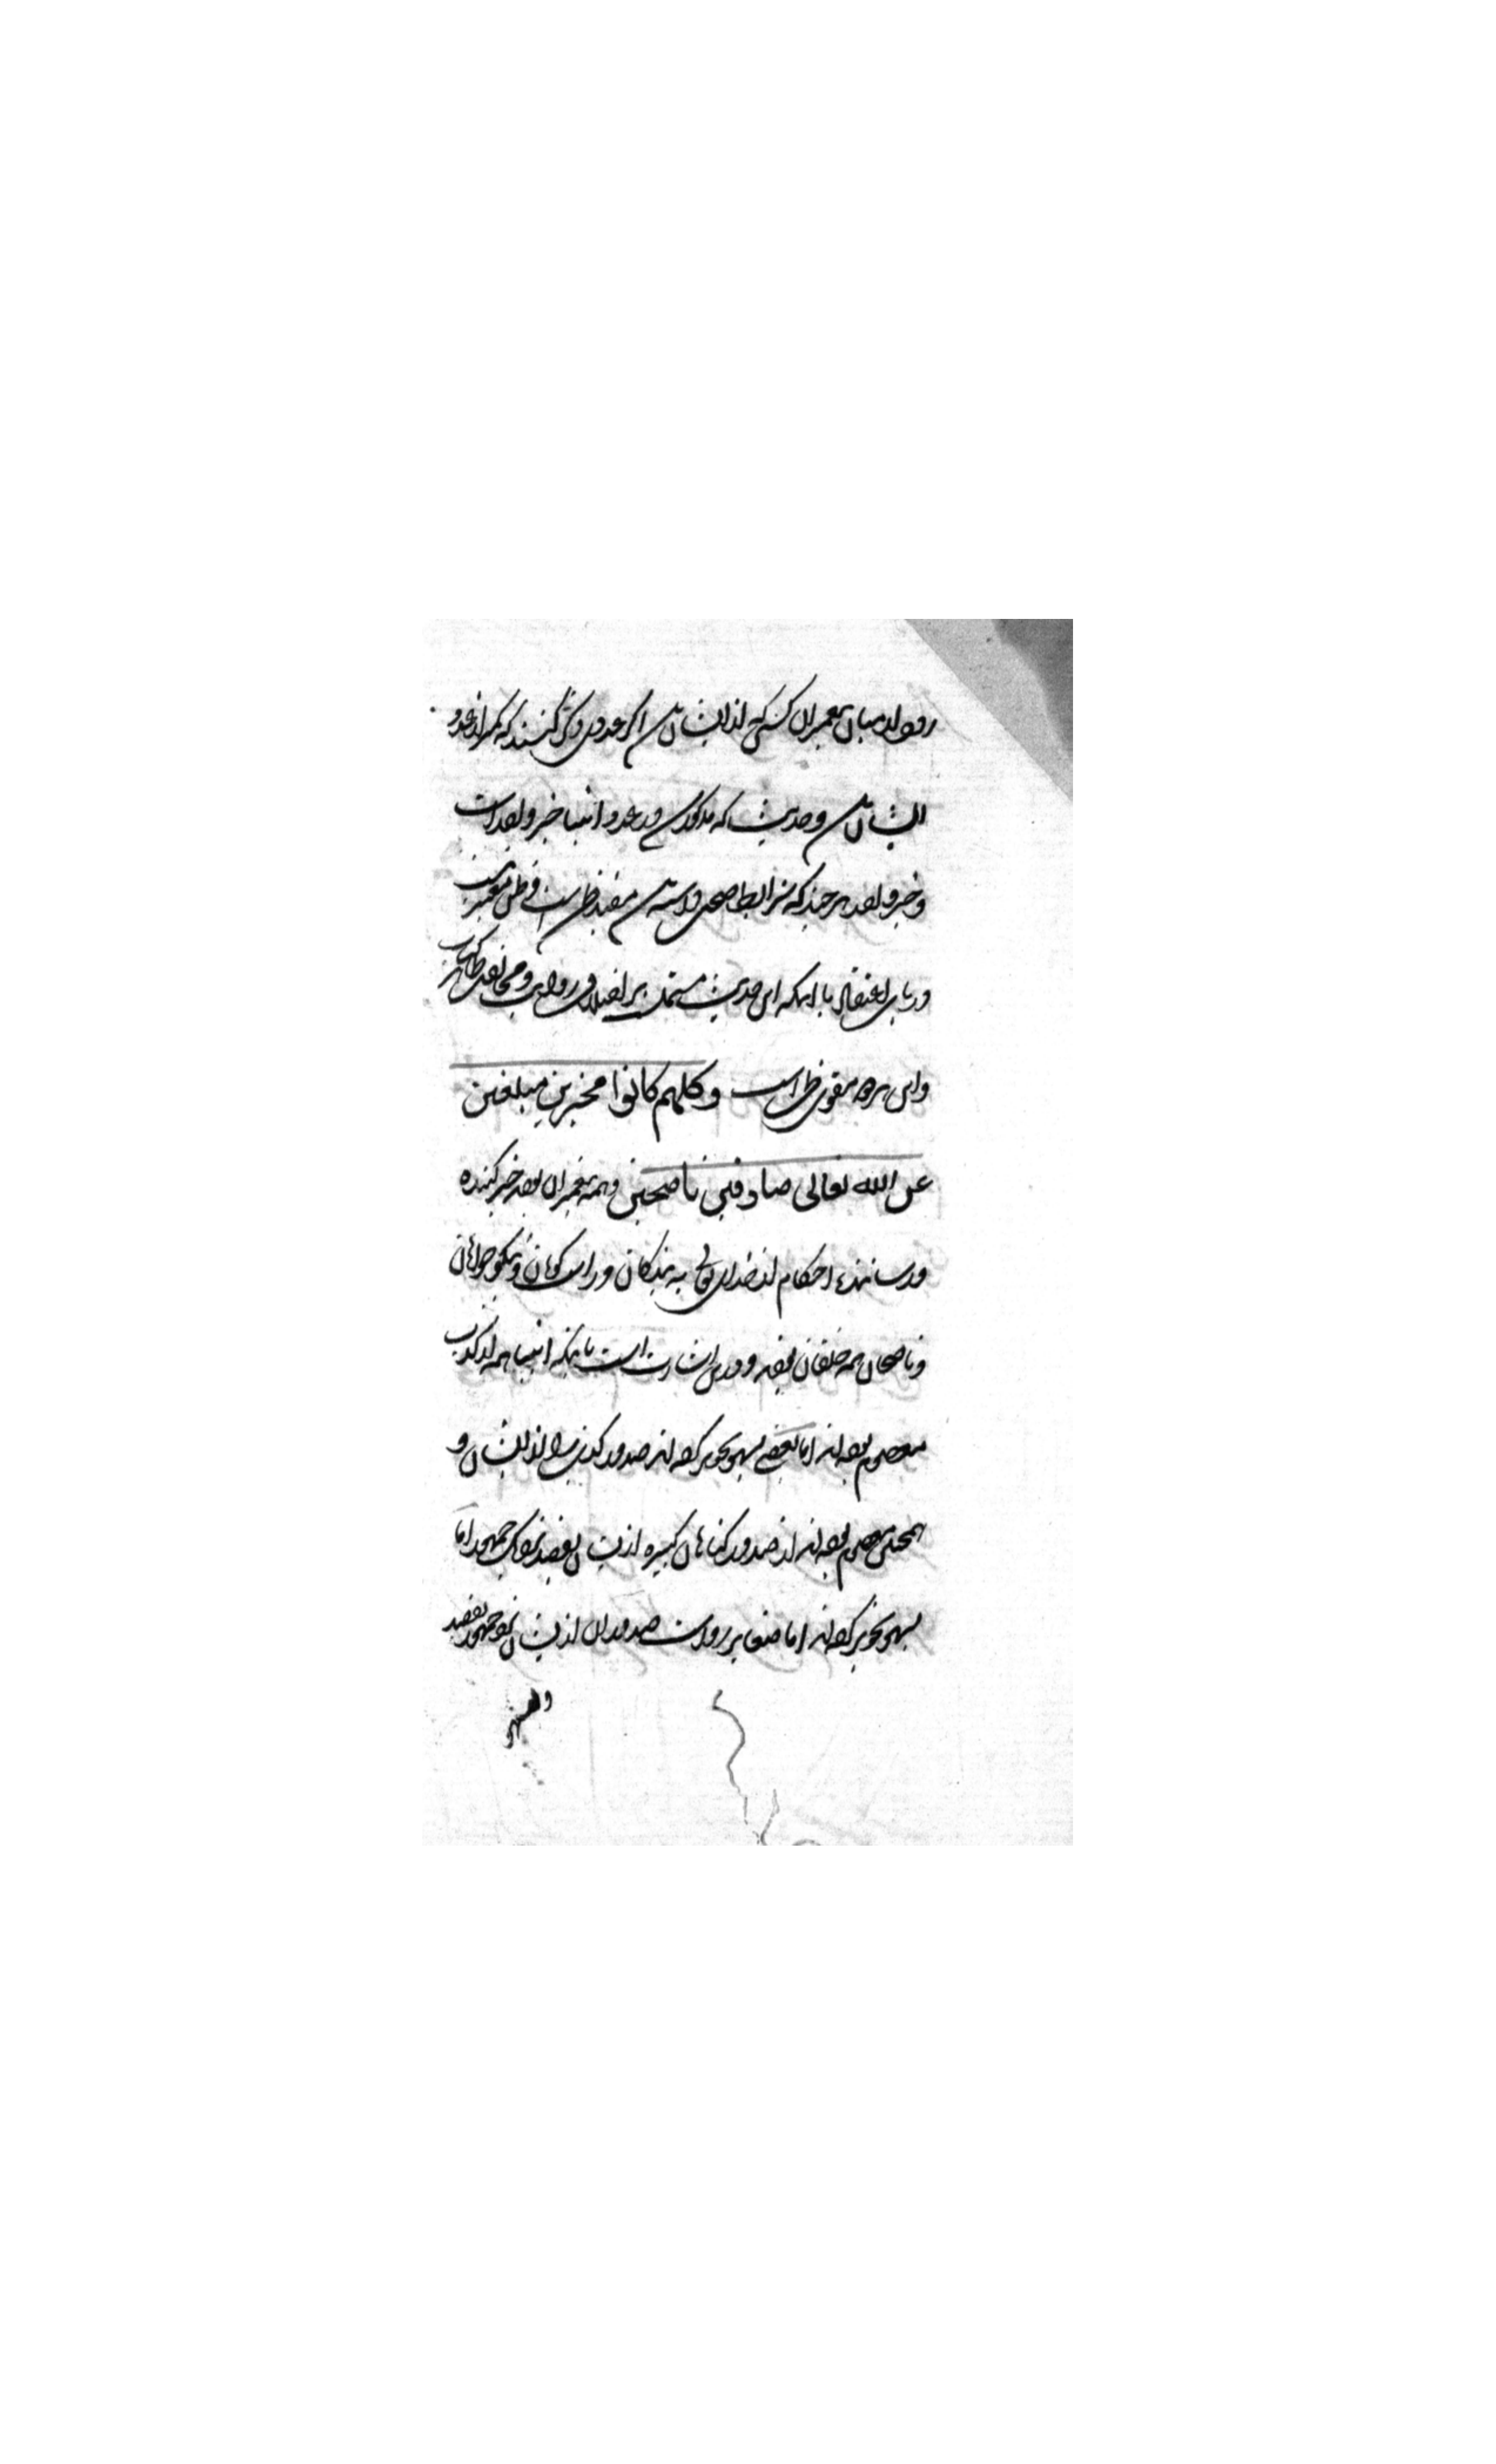 رود از میان پیغمبران کسی که از ایشان است اگر عددی ذکر کنند که کمتر از عدد
ایشان است و حدیث که مذکور شد در عدد انبیا خبر واحد است
و خبر واحد هر چند که شرایط صحت داشته مفید ظن است و ظن معتبر نیست
در باب اعتقاد با اینکه این حدیث مشتمل بر اختلاف روایت و مخالف ظاهر کتاب
و این هر دو مقوی ظن است وکلهم کانوا مخبرین مبلغین
عن الله تعالی صادقین ناصحین و همه پیغمبران بودند خبر کننده
و رسانندۀ احکام از خدای تعالی به بندگان و راست گویان و نیکو خواهان
و ناصحان همه خلقان بودند و درین اشارت است باینکه انبیا همه از کذب
معصوم بوده اند اما بعضی بسهو تجویز کرده اند صدور کذب را از ایشان و
همچنین معصوم بوده اند از صدور گناهان کبیره ازیشان بقصد نزدیک جمهور اما
بسهو تجویز کرده اند اما صغایر رواست صدور آن ازیشان نزد جمهور بقصد